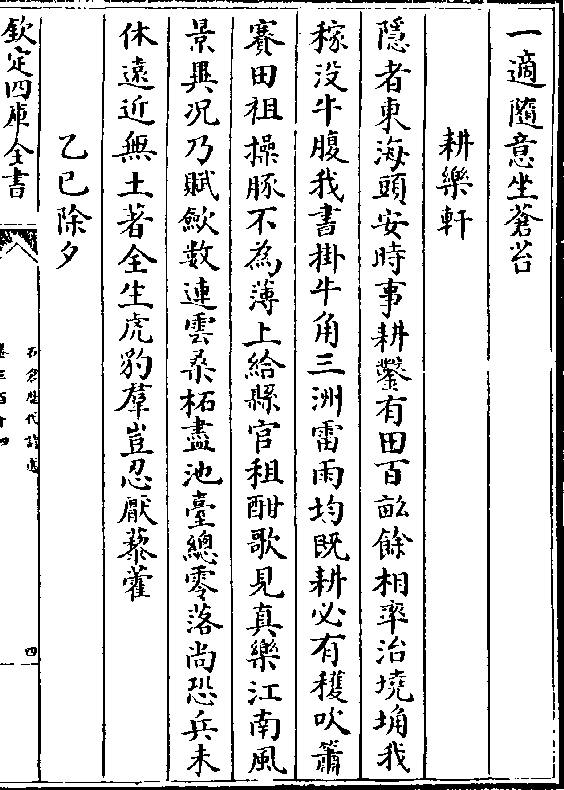 一適隨意坐蒼苔
耕樂軒
隱者東海頭安時事耕鑿有田百畝餘相率治墝埆我
稼没牛腹我書掛牛角三洲雷雨均既耕必有穫吹簫
賽田祖操豚不為薄上給縣官租酣歌見真樂江南風
景異況乃賦歛數連雲桑柘盡池臺總零落尚恐兵未
休遠近無土著全生虎豹羣豈忍厭藜藿
乙巳除夕
欽定四庫全書
四